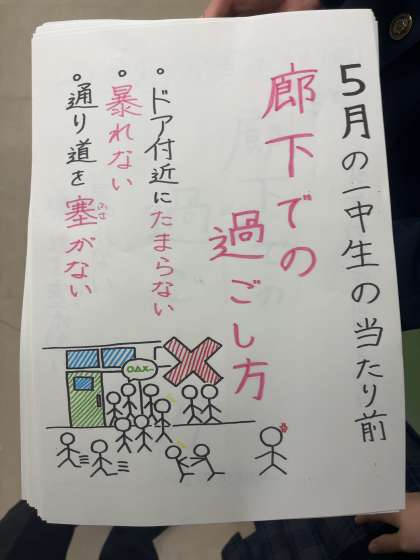 5月の一中生の当たり前
廊下での
過ごし方
。ドア付近にたまらない
。暴れない
。通り道を塞がない
ふさ